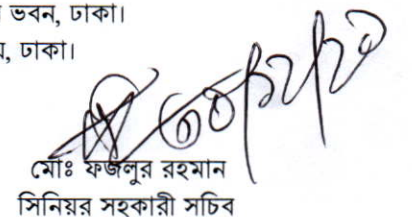 ভবন, ঢাকা।
ঢাকা।
মোঃ ফজলুর রহমান
সিনিয়র সহকারী সচিব